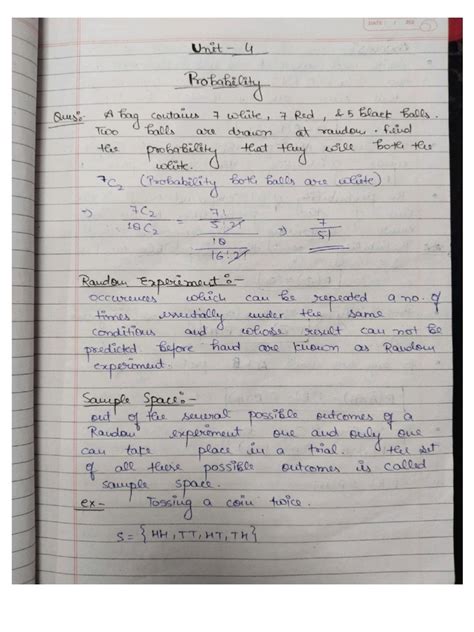 DATE: / / 202
Unit - 4
Probability
Ques:- A bag contains 7 white, 7 Red, & 5 black balls.
Two balls are drawn at random. find
the probability that they will both the
white.
7C2 (Probability both balls are white)
⇒ 7C2 / 18C2 = 7! / 5! 2! / 18 / 16! 2! ⇒ 7 / 51
Random Experiment :-
occurences which can be repeated a no. of
times essentially under the same
conditions and whose result can not be
predicted before hand are known as Random
experiment.
Sample Space :-
out of the several possible outcomes of a
Random experiment one and only one
can take place in a trial. the set
of all these possible outcomes is called
sample space.
ex - Tossing a coin twice.
S = { HH, TT, HT, TH }